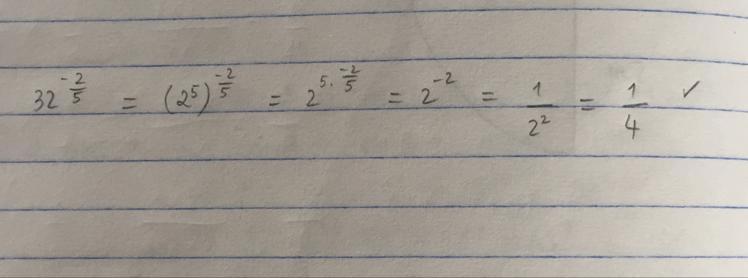 32^(-2/5) = (2^5)^(-2/5) = 2^(5·(-2/5)) = 2^(-2) = 1/2^2 = 1/4 ✓